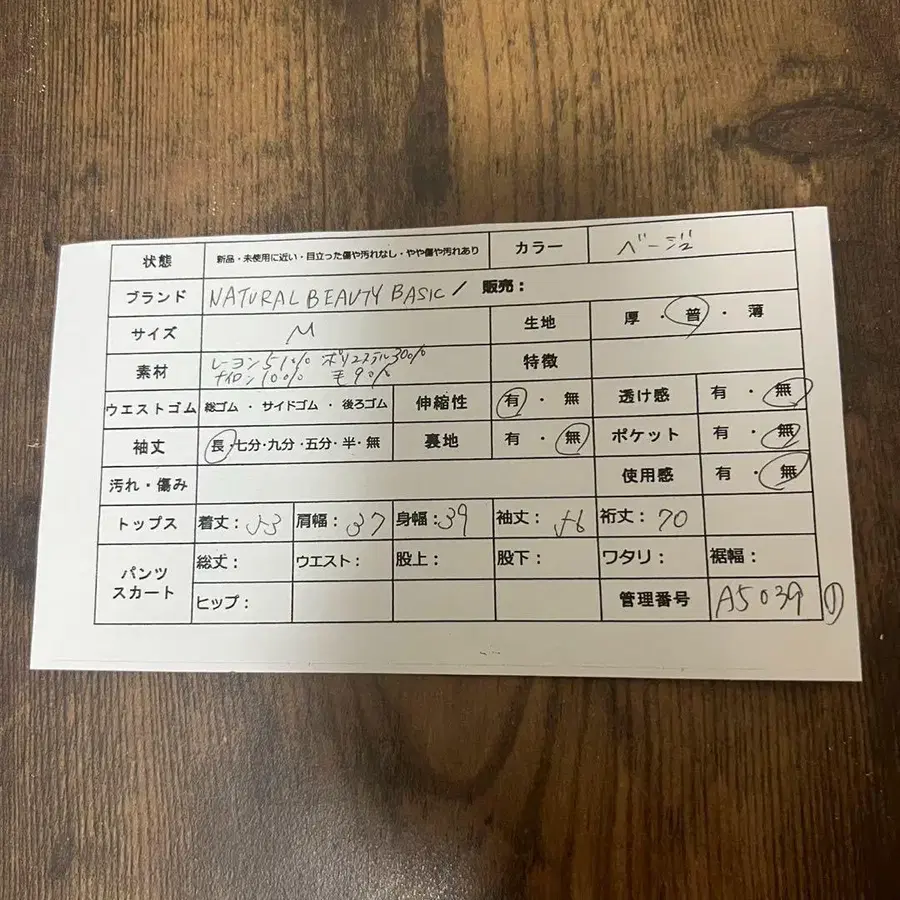 状態 新品・未使用に近い・目立った傷や汚れなし・やや傷や汚れあり カラー ベージュ
ブランド NATURAL BEAUTY BASIC / 販売：
サイズ M 生地 厚・普・薄
素材 レーヨン51% ポリエステル30% 特徴
ナイロン10% 毛9%
ウエストゴム 総ゴム・サイドゴム・後ろゴム 伸縮性 有・無 透け感 有・無
袖丈 長・七分・九分・五分・半・無 裏地 有・無 ポケット 有・無
汚れ・傷み 使用感 有・無
トップス 着丈：53 肩幅：37 身幅：39 袖丈：56 裄丈：70
パンツ スカート 総丈： ウエスト： 股上： 股下： ワタリ： 裾幅：
ヒップ： 管理番号 A5039 ①